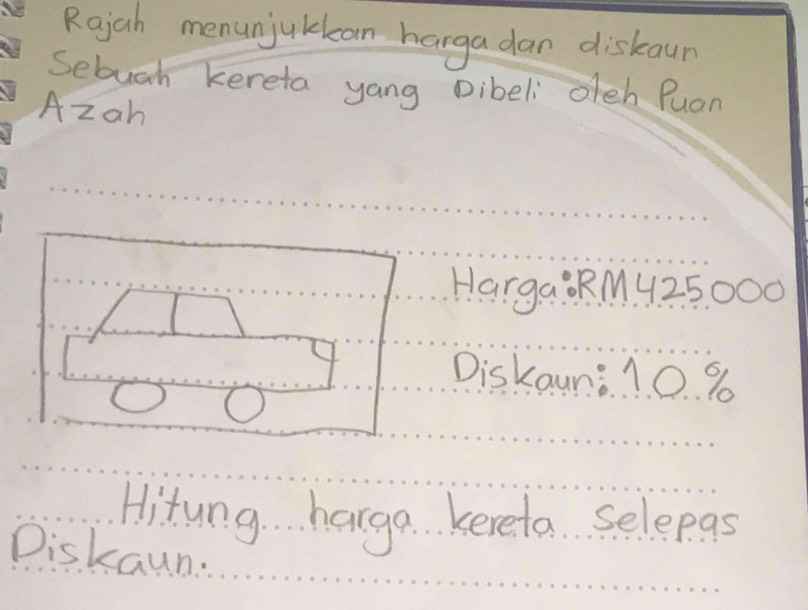 Rajah menunjukkan harga dan diskaun
Sebuah kereta yang Dibeli oleh Puan
Azah
Harga:RM425000
Diskaun: 10%
Hitung harga kereta selepas
Diskaun.